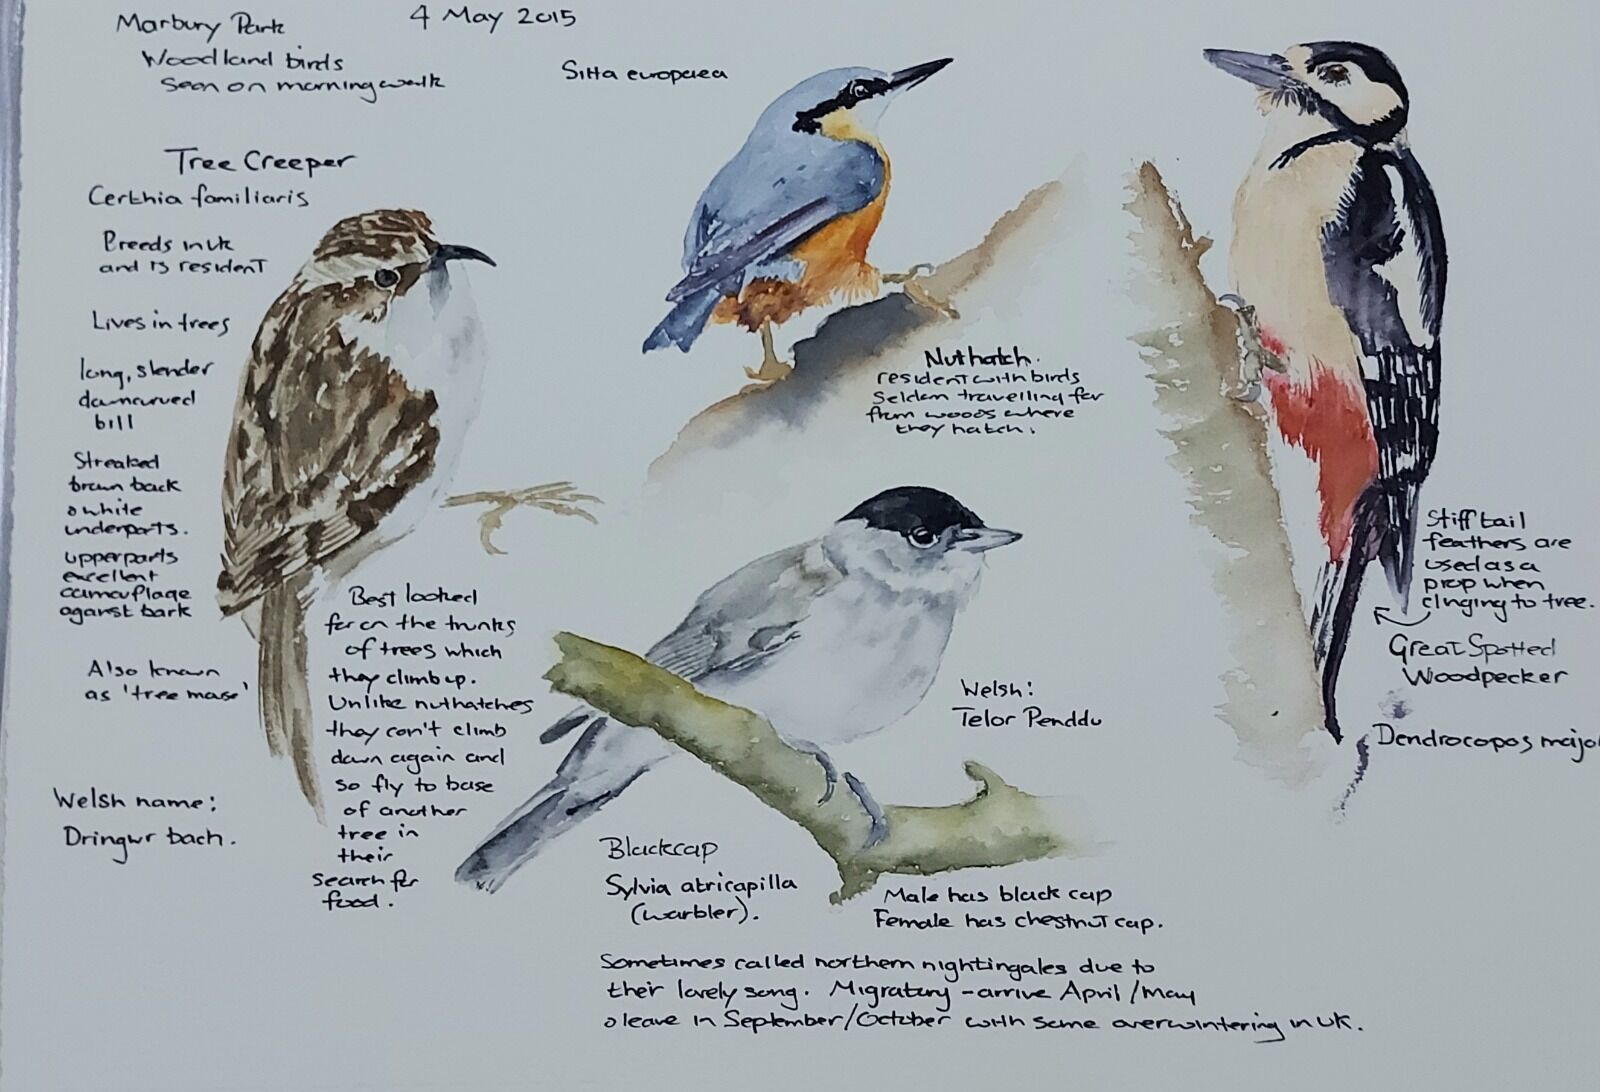 Marbury Park
4 May 2015
Woodland birds
Seen on morning walk
Sitta europaea
Tree Creeper
Certhia familiaris
Breeds in UK
and is resident
Lives in trees
long, slender
downcurved
bill
Streaked
brown back
& white
underparts.
upperparts
excellent
camouflage
against bark
Also known
as 'tree mouse'
Welsh name:
Dringwr bach.
Best looked
for on the trunks
of trees which
they climb up.
Unlike nuthatches
they can't climb
down again and
so fly to base
of another
tree in
their
search for
food.
Nuthatch.
resident with birds
Seldom travelling far
from woods where
they hatch.
Welsh:
Telor Penddu
Blackcap
Sylvia atricapilla
(warbler).
Male has black cap
Female has chestnut cap.
Sometimes called northern nightingales due to
their lovely song. Migratory - arrive April/May
& leave in September/October with some overwintering in UK.
Stiff tail
feathers are
used as a
prop when
clinging to tree.
Great Spotted
Woodpecker
Dendrocopos major